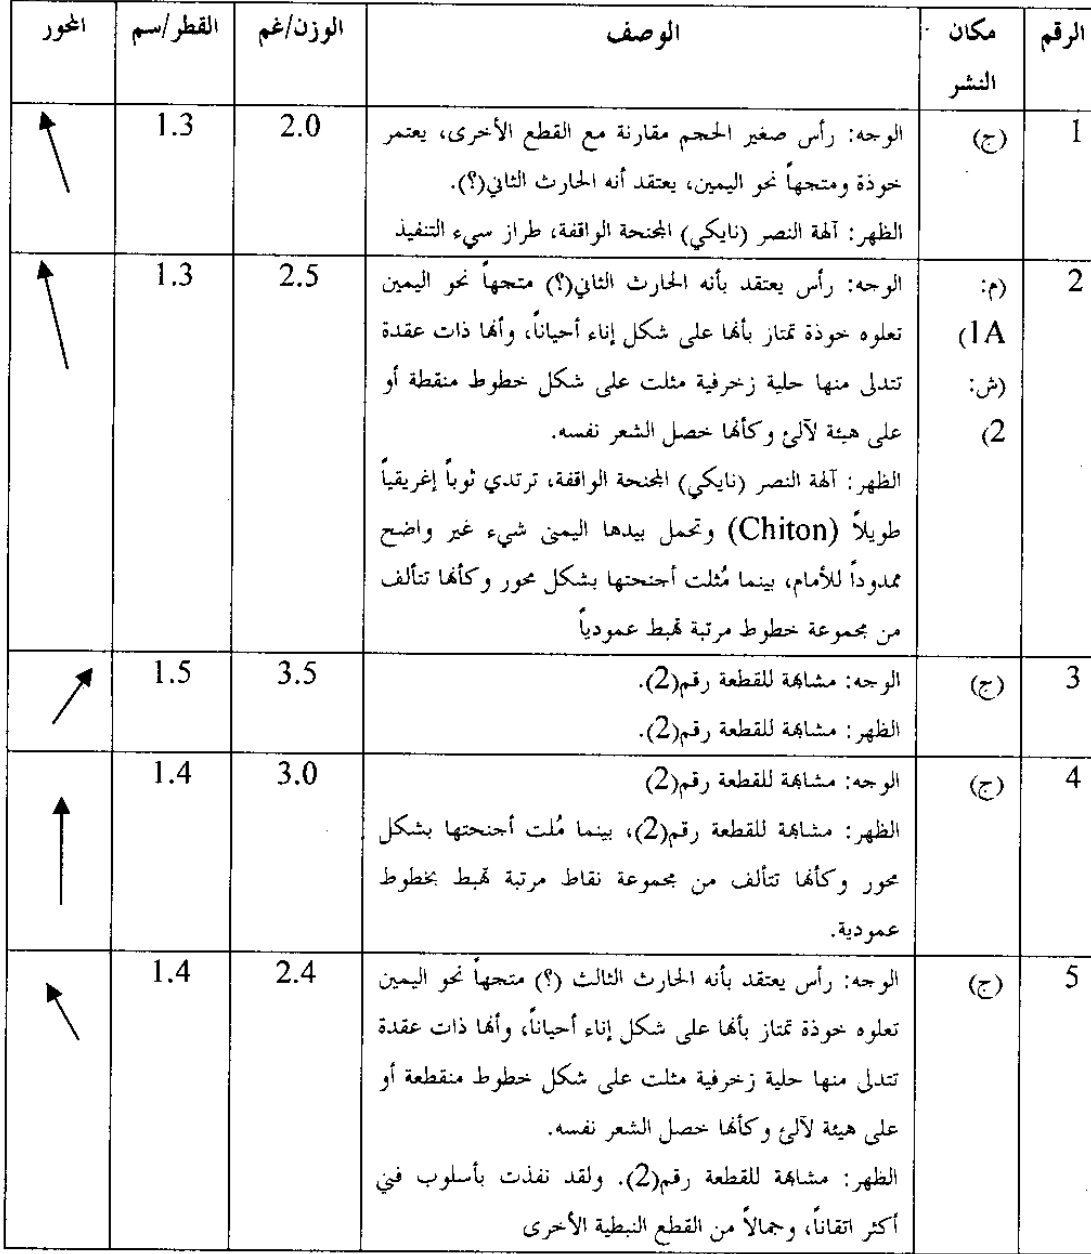 الرقم
مكان
النشر
الوصف
الوزن/غم
القطر/سم
المحور
1
(ج)
الوجه: رأس صغير الحجم مقارنة مع القطع الأخرى، يعتمر
خوذة ومتجهاً نحو اليمين، يعتقد أنه الحارث الثاني(؟).
الظهر: آلهة النصر (نايكي) المجنحة الواقفة، طراز سيء التنفيذ
2.0
1.3
2
(م:
1A)
(ش:
2)
الوجه: رأس يعتقد بأنه الحارث الثاني(؟) متجهاً نحو اليمين
تعلوه خوذة تمتاز بأنها على شكل إناء أحياناً، وأنها ذات عقدة
تتدلى منها حلية زخرفية مثلت على شكل خطوط منقطة أو
على هيئة لآلئ وكأنها خصل الشعر نفسه.
الظهر: آلهة النصر (نايكي) المجنحة الواقفة، ترتدي ثوباً إغريقياً
طويلاً (Chiton) وتحمل بيدها اليمنى شيء غير واضح
ممدوداً للأمام، بينما مُثلت أجنحتها بشكل محور وكأنها تتألف
من مجموعة خطوط مرتبة تهبط عمودياً
2.5
1.3
3
(ج)
الوجه: مشابهة للقطعة رقم(2).
الظهر: مشابهة للقطعة رقم(2).
3.5
1.5
4
(ج)
الوجه: مشابهة للقطعة رقم(2)
الظهر: مشابهة للقطعة رقم(2)، بينما مُلت أجنحتها بشكل
محور وكأنها تتألف من مجموعة نقاط مرتبة تهبط بخطوط
عمودية.
3.0
1.4
5
(ج)
الوجه: رأس يعتقد بأنه الحارث الثالث (؟) متجهاً نحو اليمين
تعلوه خوذة تمتاز بأنها على شكل إناء أحياناً، وأنها ذات عقدة
تتدلى منها حلية زخرفية مثلت على شكل خطوط منقطعة أو
على هيئة لآلئ وكأنها خصل الشعر نفسه.
الظهر: مشابهة للقطعة رقم(2). ولقد نفذت بأسلوب فني
أكثر اتقاناً، وجمالاً من القطع النبطية الأخرى
2.4
1.4